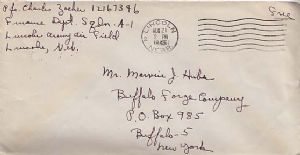 Pfc. Charles Zacher 12167396
Finance Dept. Sqdn. A-1
Lincoln Army Air Field
Lincoln, Neb.
LINCOLN
AUG 21
PM
NEBR.
Free
Mr. Marvin J. Huba
Buffalo Forge Company
P.O. Box 985
Buffalo-5
New York